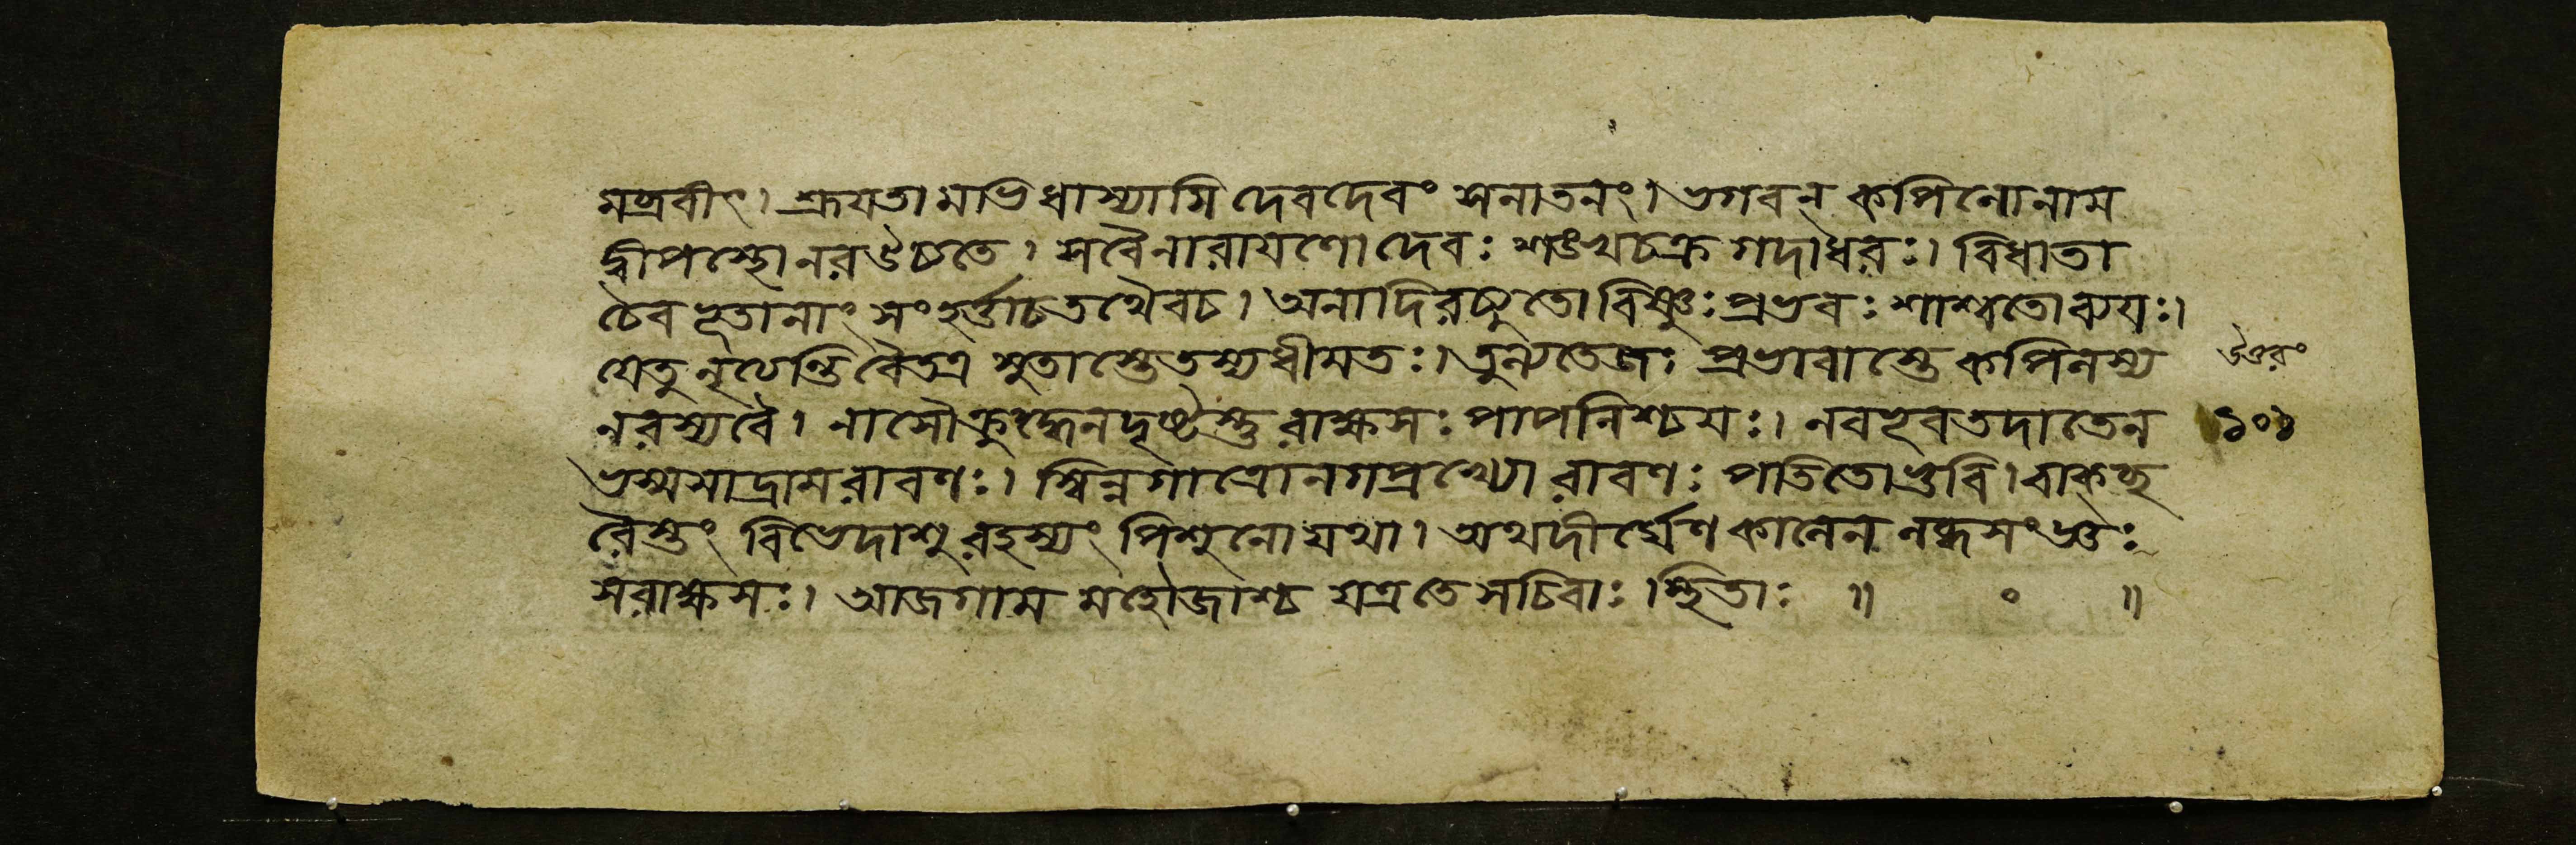 মব্রবীৎ। শ্রূযতামভিধাস্যামি দেবদেবং সনাতনং। ভগবন্ কপিলোনাম
দ্বীপস্থোনরউচতে। সবৈনারাযণোদেবঃ শঙ্খচক্রগদাধরঃ। বিধাতা
চৈবভূতানাং সংহর্ত্তাচতথৈবচ। অনাদিরচ্যুতোবিষ্ণুঃ প্রভবঃ শাশ্বতোব্যযঃ।
যেতুনৃত্যন্তিবৈতত্র সুতাস্তেতস্যধীমতঃ। তুল্যতেজঃ প্রভাবাস্তে কপিলস্য
নরস্যবৈ। নাসৌক্রুদ্ধেনদৃষ্টস্তু রাক্ষসঃ পাপনিশ্চযঃ। নবভূবতদাতেন
ভস্মসাদ্রামরাবণঃ। স্বিন্নগাত্রোনগপ্রখ্যো রাবণঃ পতিতোভুবি। বাক্
রৈস্তং বিভেদাশু রহস্যং পিশুনোযথা। অথদীর্ঘেণকালেন লব্ধসংজ্ঞঃ
সরাক্ষসঃ। আজগাম মহৌজাশ্চ যত্রতেসচিবাঃ।স্থিতাঃ ॥ ० ॥
উত্তরং